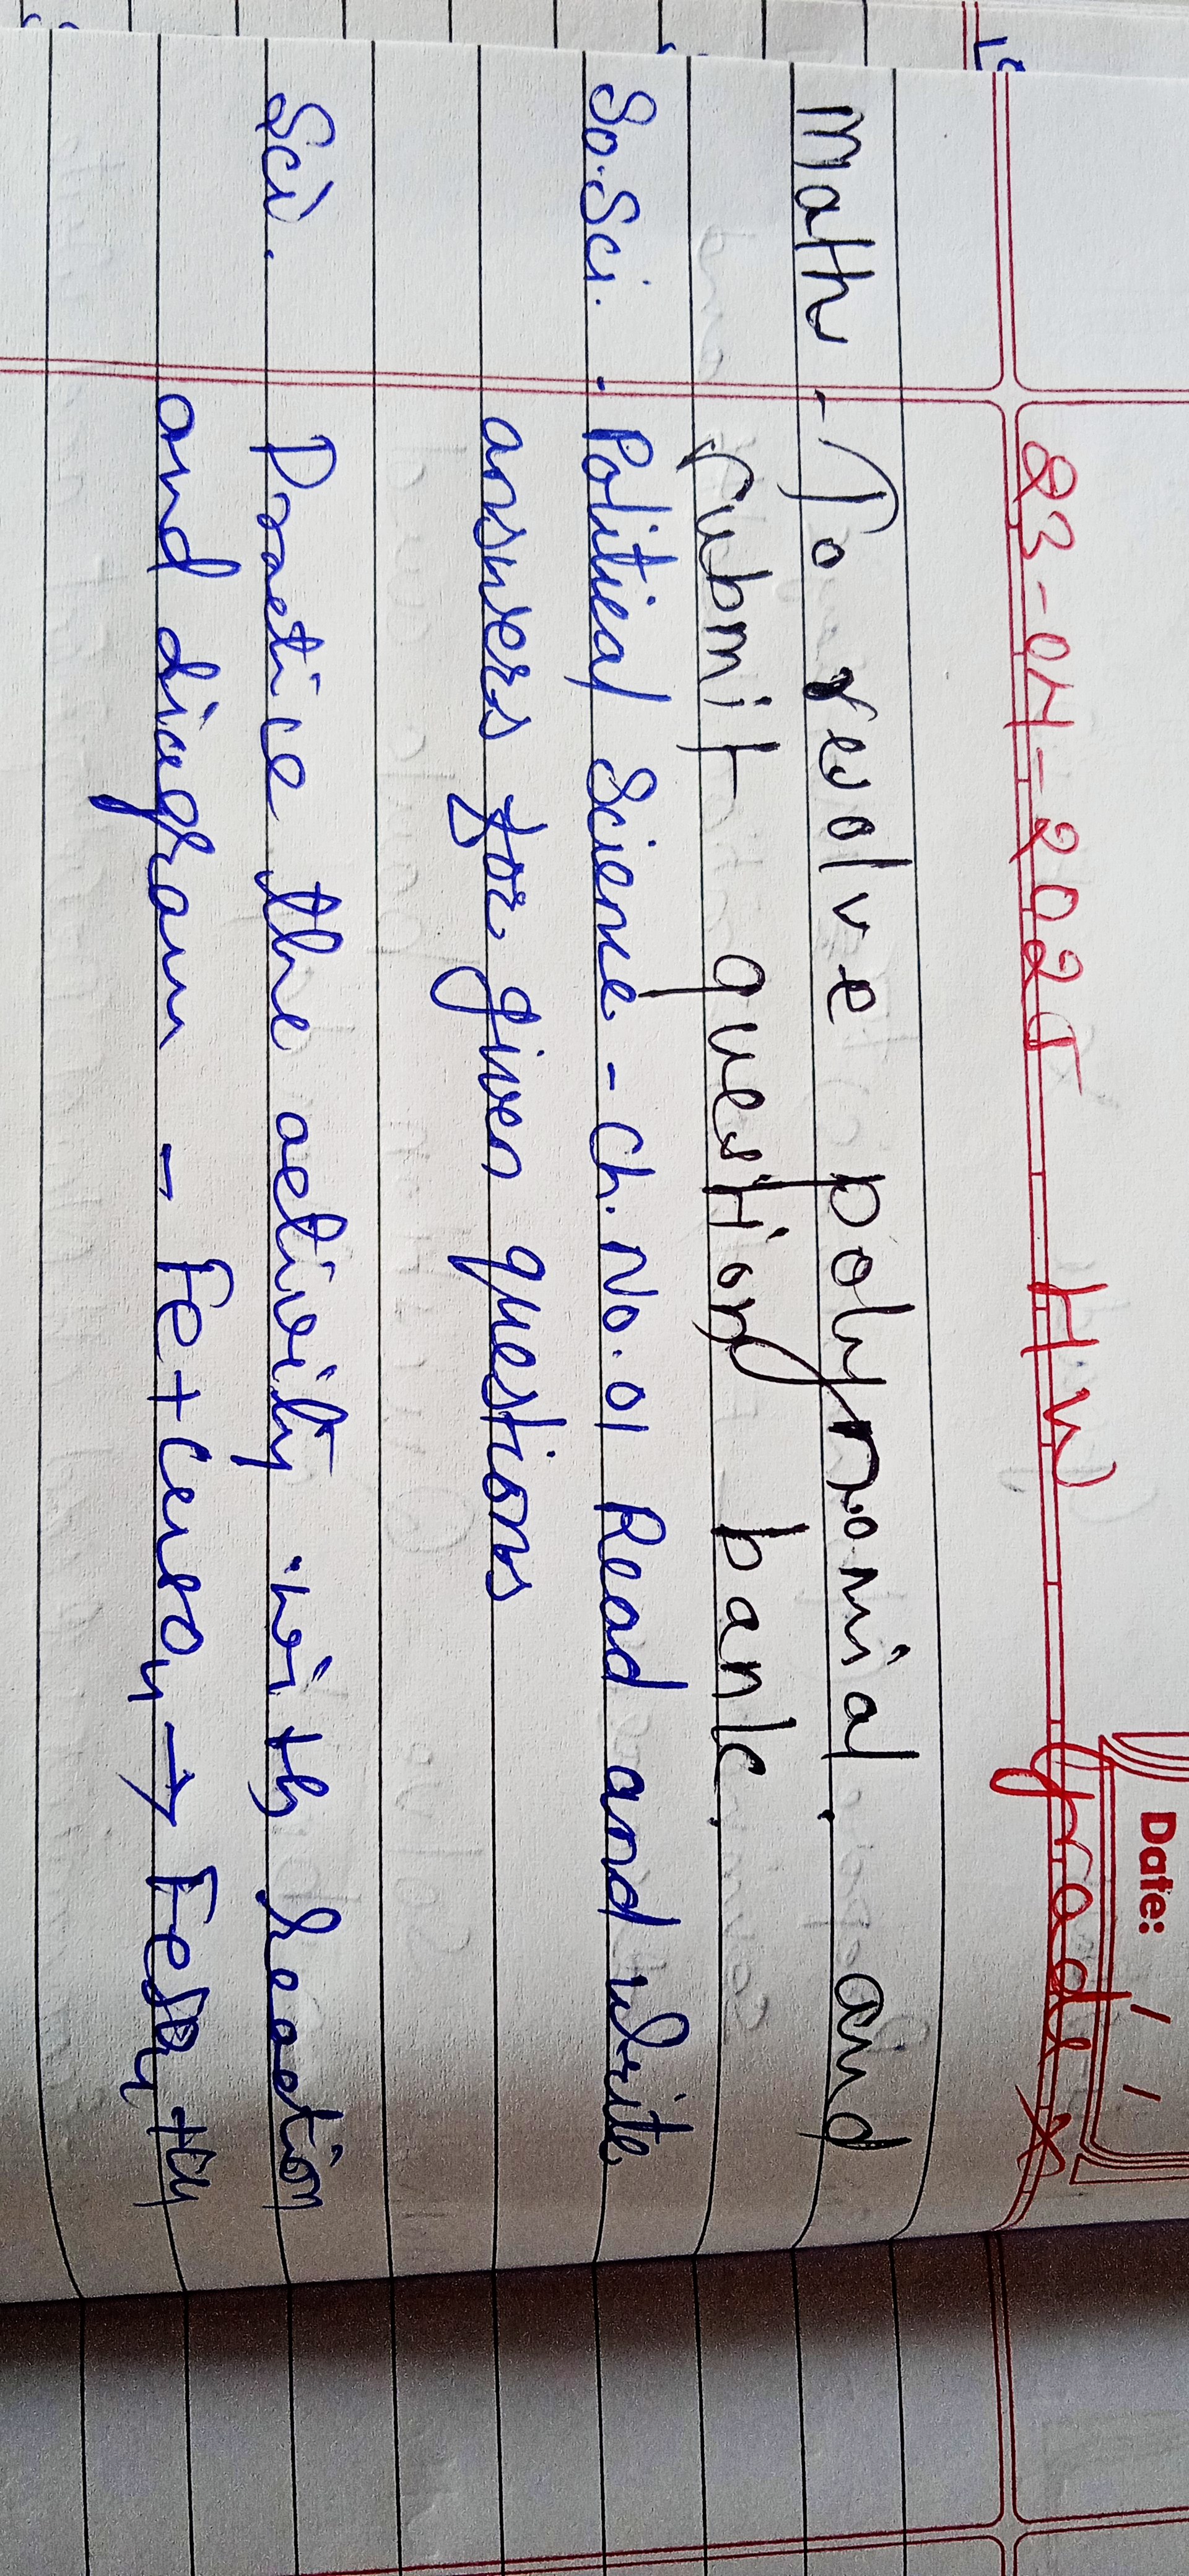 Date: / /
23-04-2025 HW Grade X
Math - To resolve polynomial. and
submit question bank.
So.Sci. - Political Science - Ch. No. 01 Read and write
answers for given questions
Sci. Practice the activity with Reaction
and diagram - Fe + CuSO4 → FeSO4 + Cu